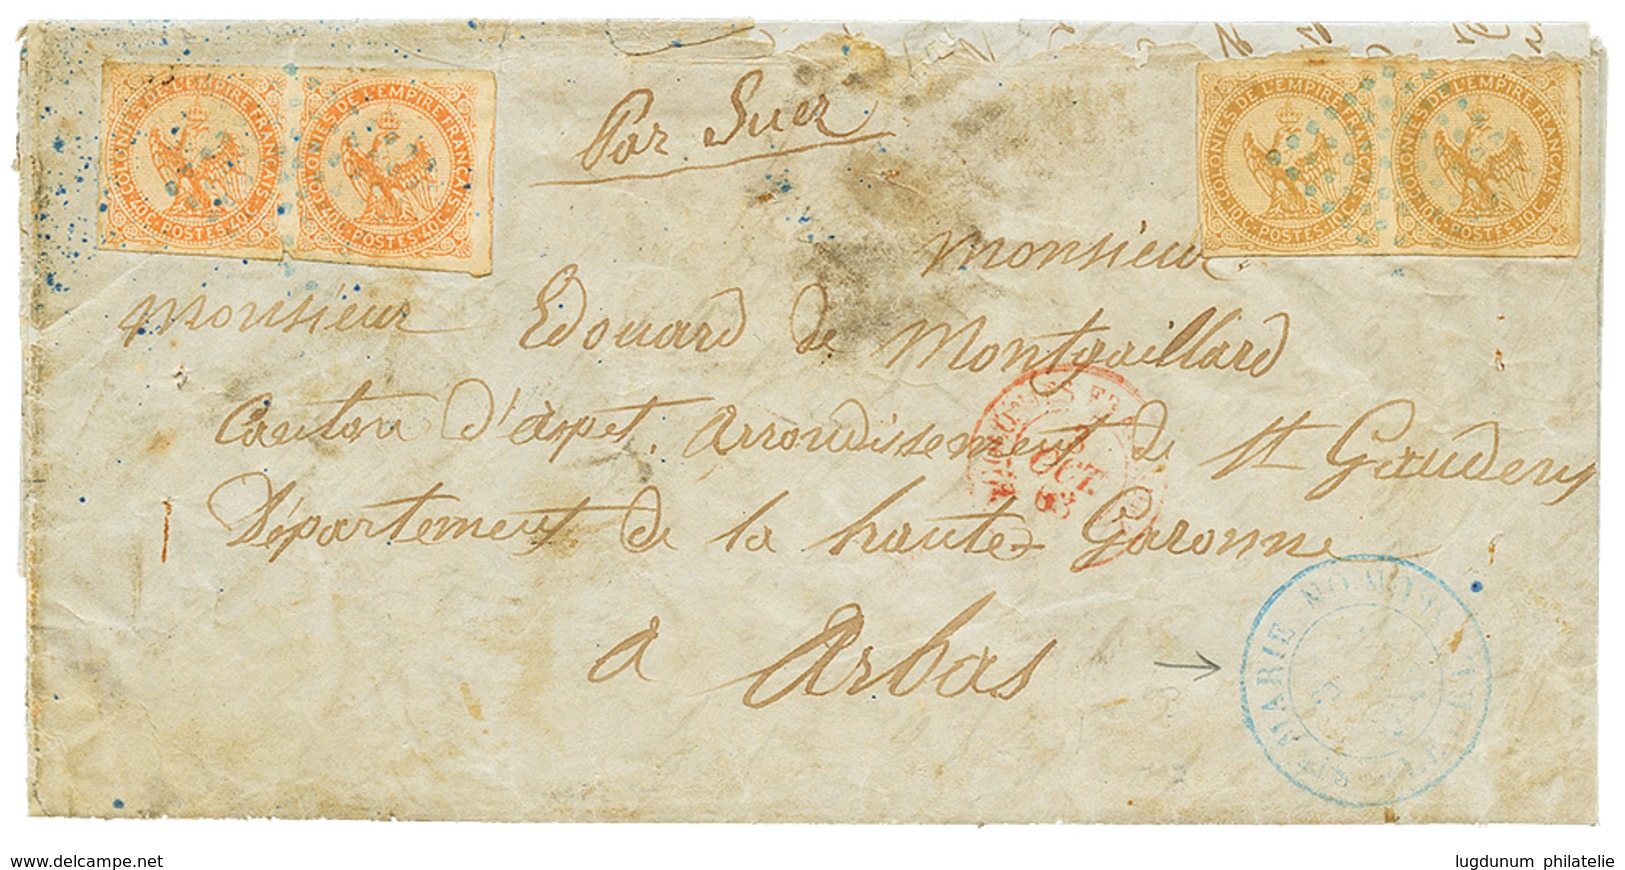 COLONIES DE L'EMPIRE FRANÇAIS
40C. POSTES. 40C.
COLONIES DE L'EMPIRE FRANÇAIS
40C. POSTES. 40C.
Par Suez
COLONIES DE L'EMPIRE FRANÇAIS
10C. POSTES. 10C.
COLONIES DE L'EMPIRE FRANÇAIS
10C. POSTES. 10C.
Monsieur
Monsieur Edouard de Montgaillard
Canton d'aspet. Arrondissement de St Gaudens
OCT.
63
Département de la haute Garonne
a Arbas
STE MARIE
delcampe.net
lugdunum philatelie